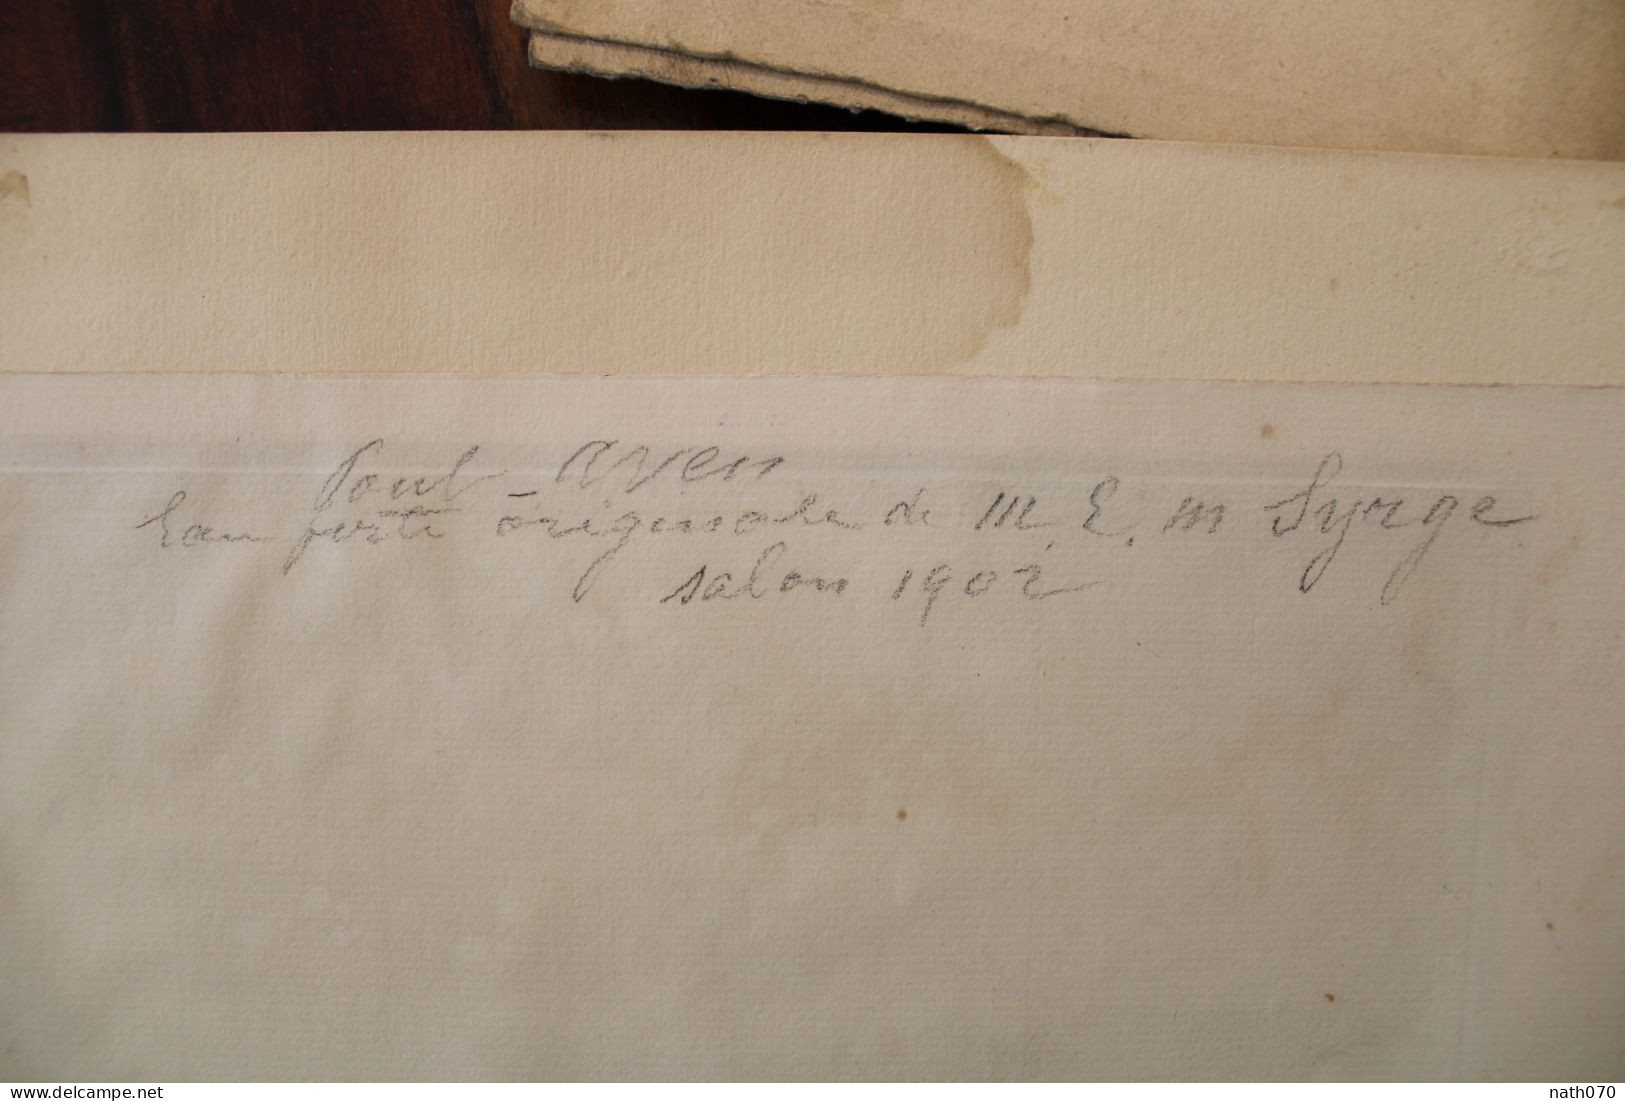 Pont-Aven
Eau forte originale de M. E. M Syrge
salon 1902
delcampe.net
nath070